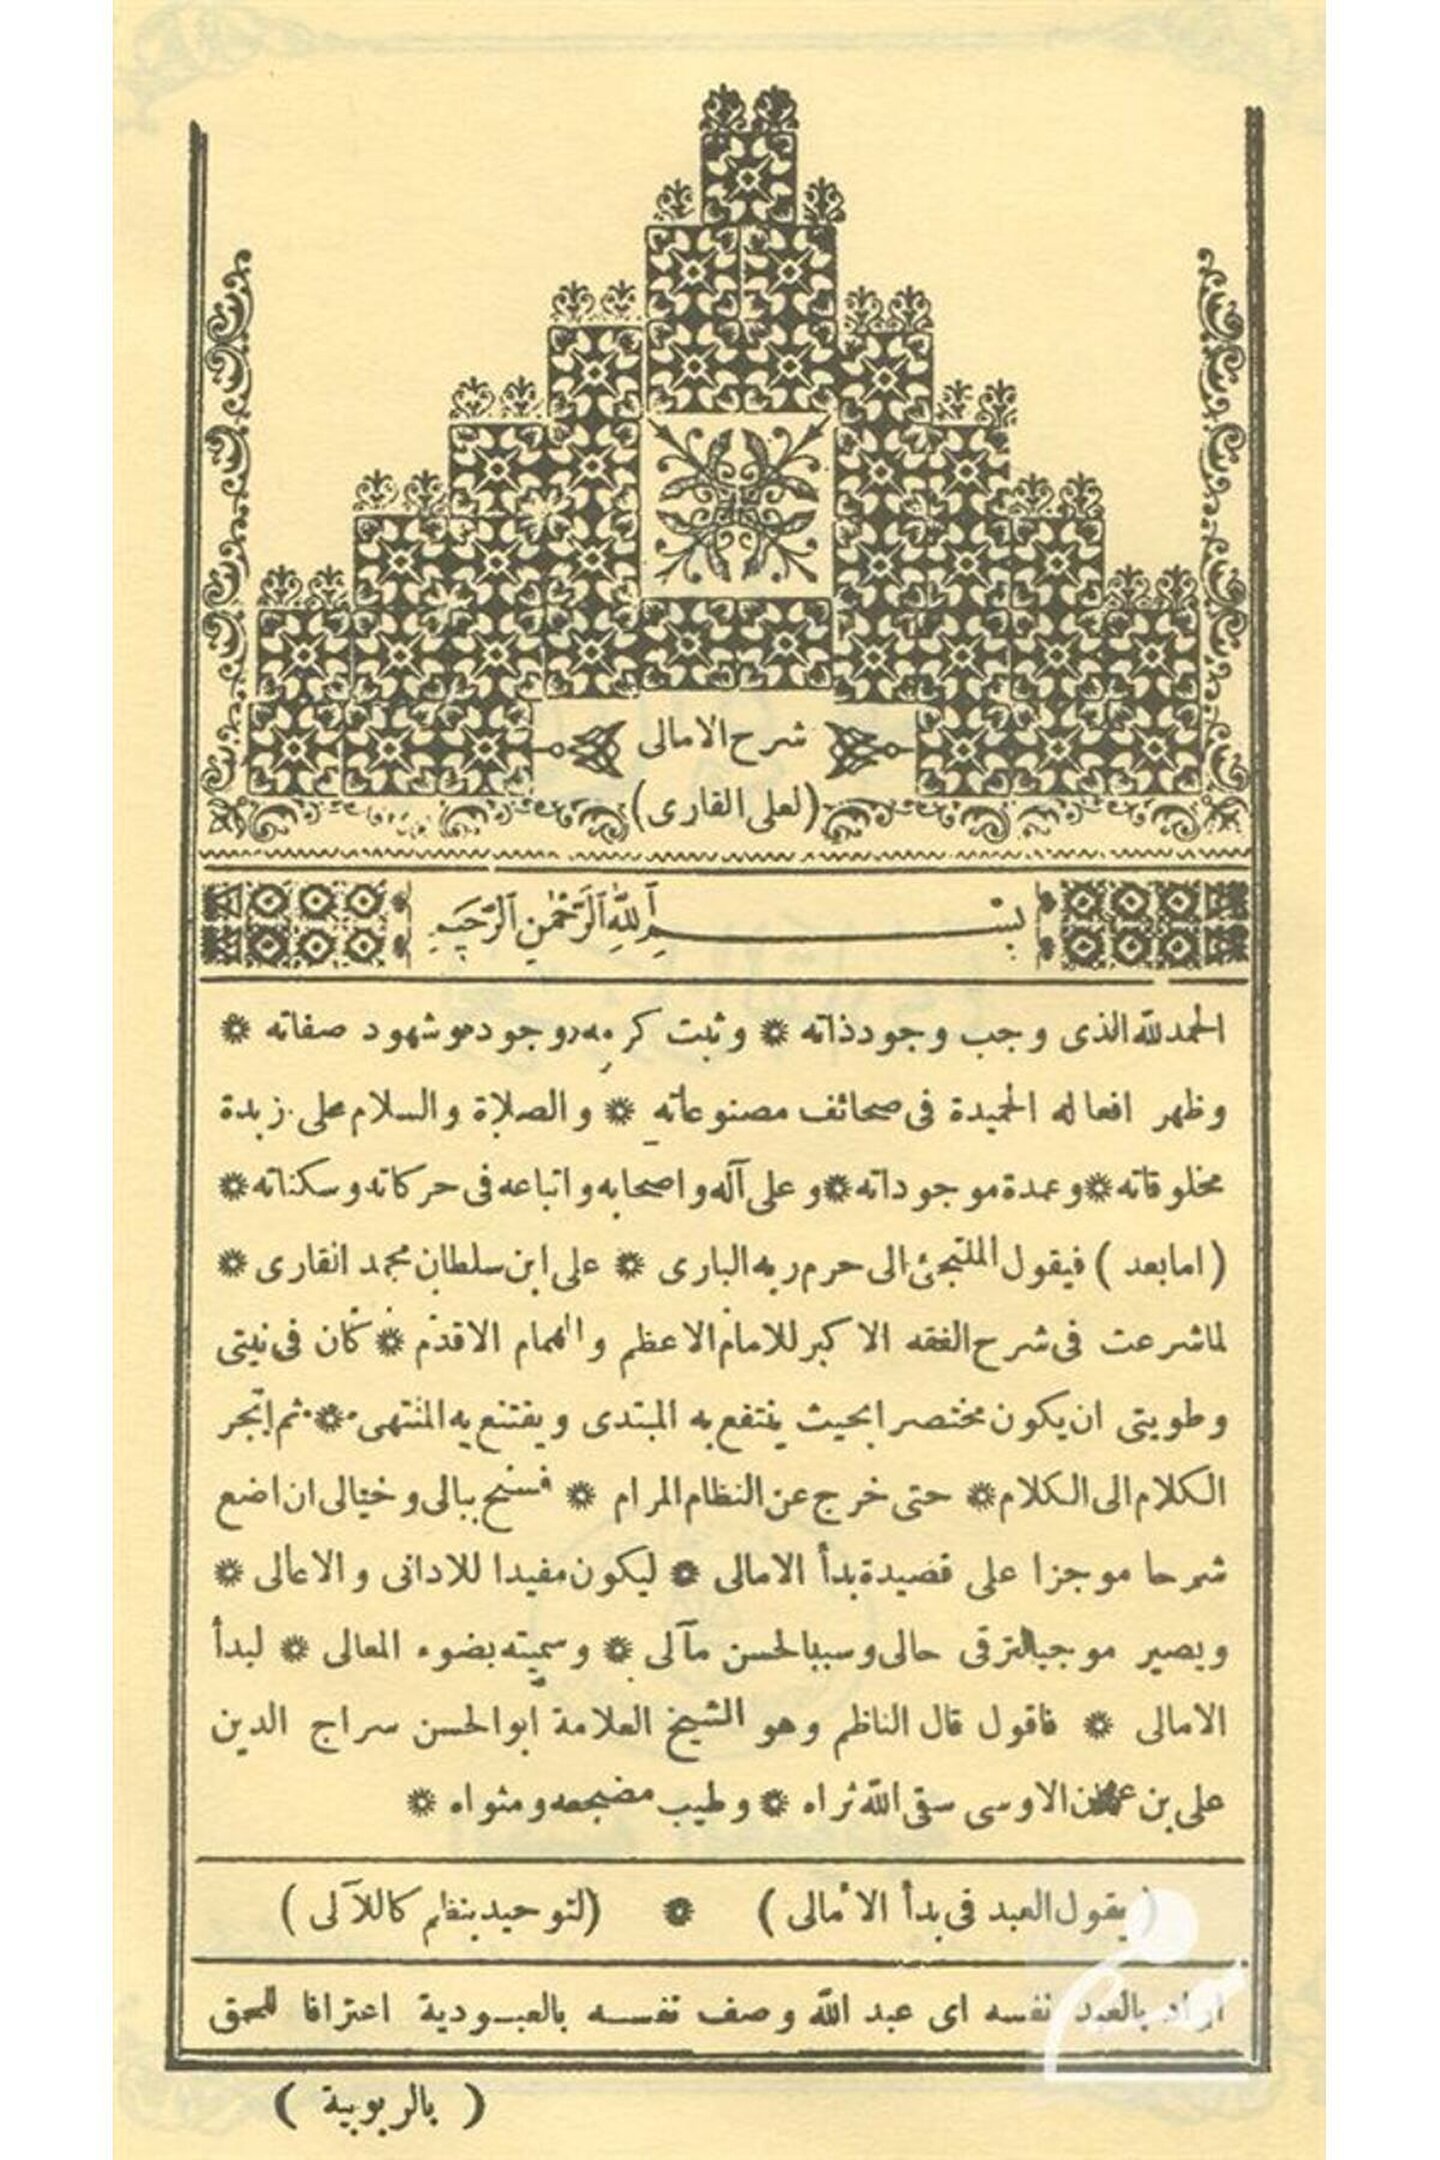 شرح الامالى
(لعلى القارى)
بِسْمِ ٱللَّهِ ٱلرَّحْمٰنِ ٱلرَّحِيمِ
الحمدلله الذى وجب وجود ذاته ❋ وثبت كرمه وجوده وشهود صفاته ❋
وظهر افعاله الحميدة فى صحائف مصنوعاته ❋ والصلاة والسلام على زبدة
مخلوقاته ❋ وعمدة موجوداته ❋ وعلى آله واصحابه واتباعه فى حركاته وسكناته ❋
(امابعد) فيقول الملتجئ الى حرم ربه البارى ❋ على ابن سلطان محمد القارى ❋
لماشرعت فى شرح الفقه الاكبر للامام الاعظم والهمام الاقدم ❋ كان فى نيتى
وطويتى ان يكون مختصرا بحيث ينتفع به المبتدى ويقتنع به المنتهى ❋ ثم انجر
الكلام الى الكلام ❋ حتى خرج عن النظام المرام ❋ فسنح ببالى وخيالى ان اضع
شرحا موجزا على قصيدة بدأ الامالى ❋ ليكون مفيدا للادانى والاعالى ❋
ويصير موجبا لترقى حالى وسببا لحسن مآلى ❋ وسميته بضوء المعالى ❋ لبدأ
الامالى ❋ فاقول قال الناظم وهو الشيخ العلامة ابوالحسن سراج الدين
على بن عثمان الاوسى سقى الله ثراه ❋ وطيب مضجعه ومثواه ❋
(يقول العبد فى بدأ الامالى) ❋ (لتوحيد بنظم كاللآلى)
اراد بالعبد نفسه اى عبد الله وصف نفسه بالعبودية اعترافا للحق
(بالربوبية)